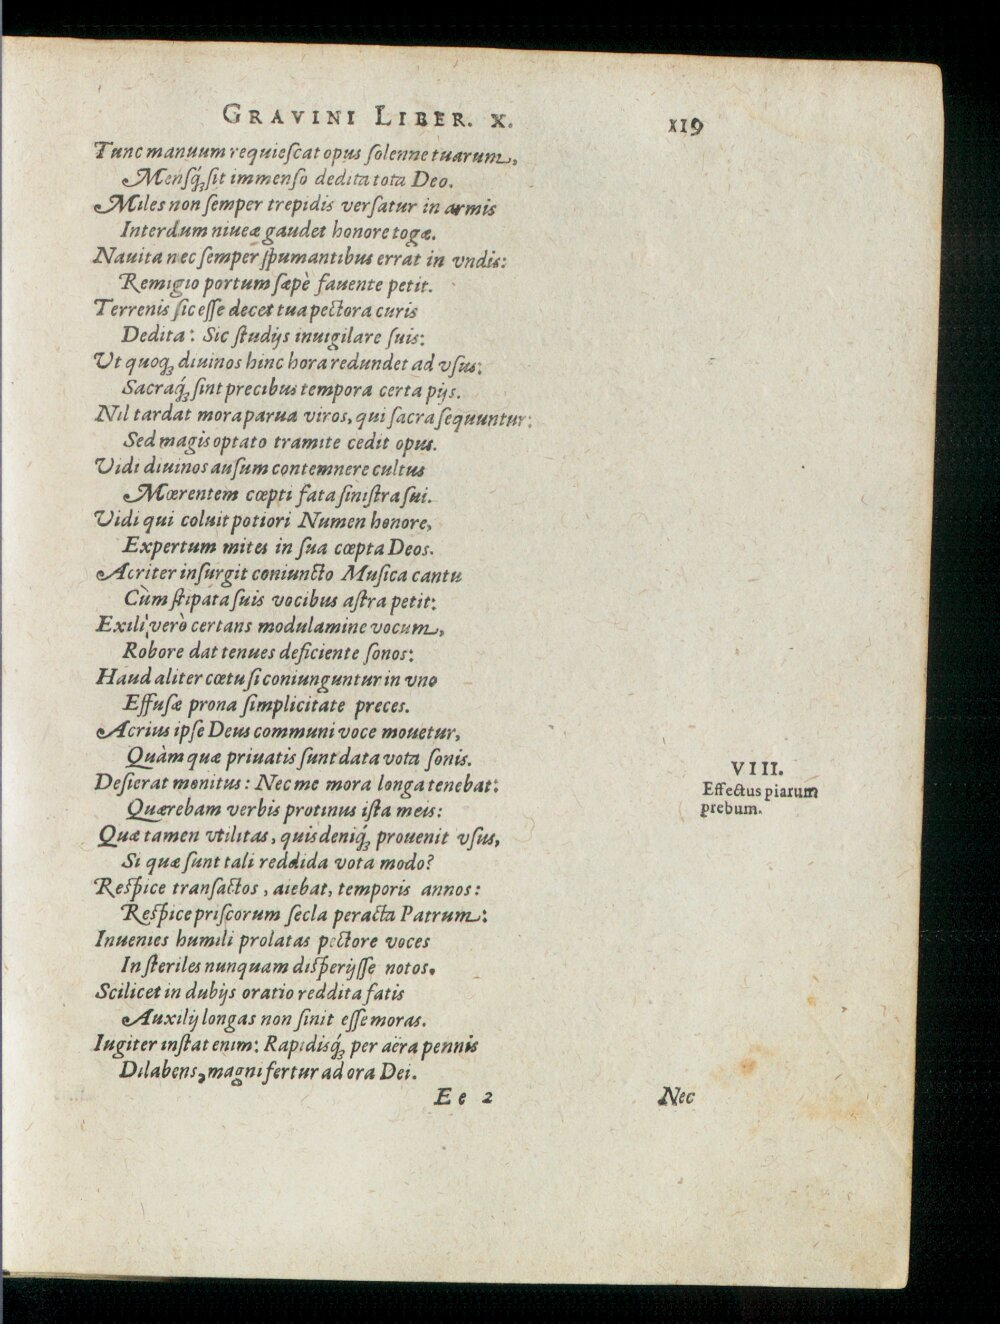 GRAVINI LIBER. X. 119
Tunc manuum requieſcat opus ſolenne tuarum,
Menſq́; ſit immenſo dedita tota Deo.
Miles non ſemper trepidis verſatur in armis
Interdum niueæ gaudet honore togæ.
Nauita nec ſemper ſpumantibus errat in vndis:
Remigio portum ſæpè fauente petit.
Terrenis ſic eſſe decet tua pectora curis
Dedita: Sic ſtudijs inuigilare ſuis:
Ut quoq; diuinos hinc hora redundet ad vſus:
Sacraq́; ſint precibus tempora certa pijs.
Nil tardat mora parua viros, qui ſacra ſequuntur:
Sed magis optato tramite cedit opus.
Vidi diuinos auſum contemnere cultus
Mœrentem cœpti fata ſiniſtra ſui.
Vidi qui coluit potiori Numen honore,
Expertum mites in ſua cœpta Deos.
Acriter inſurgit coniuncto Muſica cantu
Cùm ſtipata ſuis vocibus aſtra petit:
Exili verò certans modulamine vocum,
Robore dat tenues deficiente ſonos:
Haud aliter cœtu ſi coniunguntur in vno
Effuſæ prona ſimplicitate preces.
Acrius ipſe Deus communi voce mouetur,
Quàm quæ priuatis ſunt data vota ſonis.
Deſierat monitus: Nec me mora longa tenebat:
Quærebam verbis protinus iſta meis:
Quæ tamen vtilitas, quis deniq́; prouenit vſus,
Si quæ ſunt tali reddida vota modo?
Reſpice tranſactos, aiebat, temporis annos:
Reſpice priſcorum ſecla peracta Patrum:
Inuenies humili prolatas pectore voces
In ſteriles nunquam diſperijſſe notos.
Scilicet in dubijs oratio reddita fatis
Auxilij longas non ſinit eſſe moras.
Iugiter inſtat enim: Rapidisq́; per aëra pennis
Dilabens, magni fertur ad ora Dei.
VIII.
Effectus piarum
prebum.
Ee 2 Nec